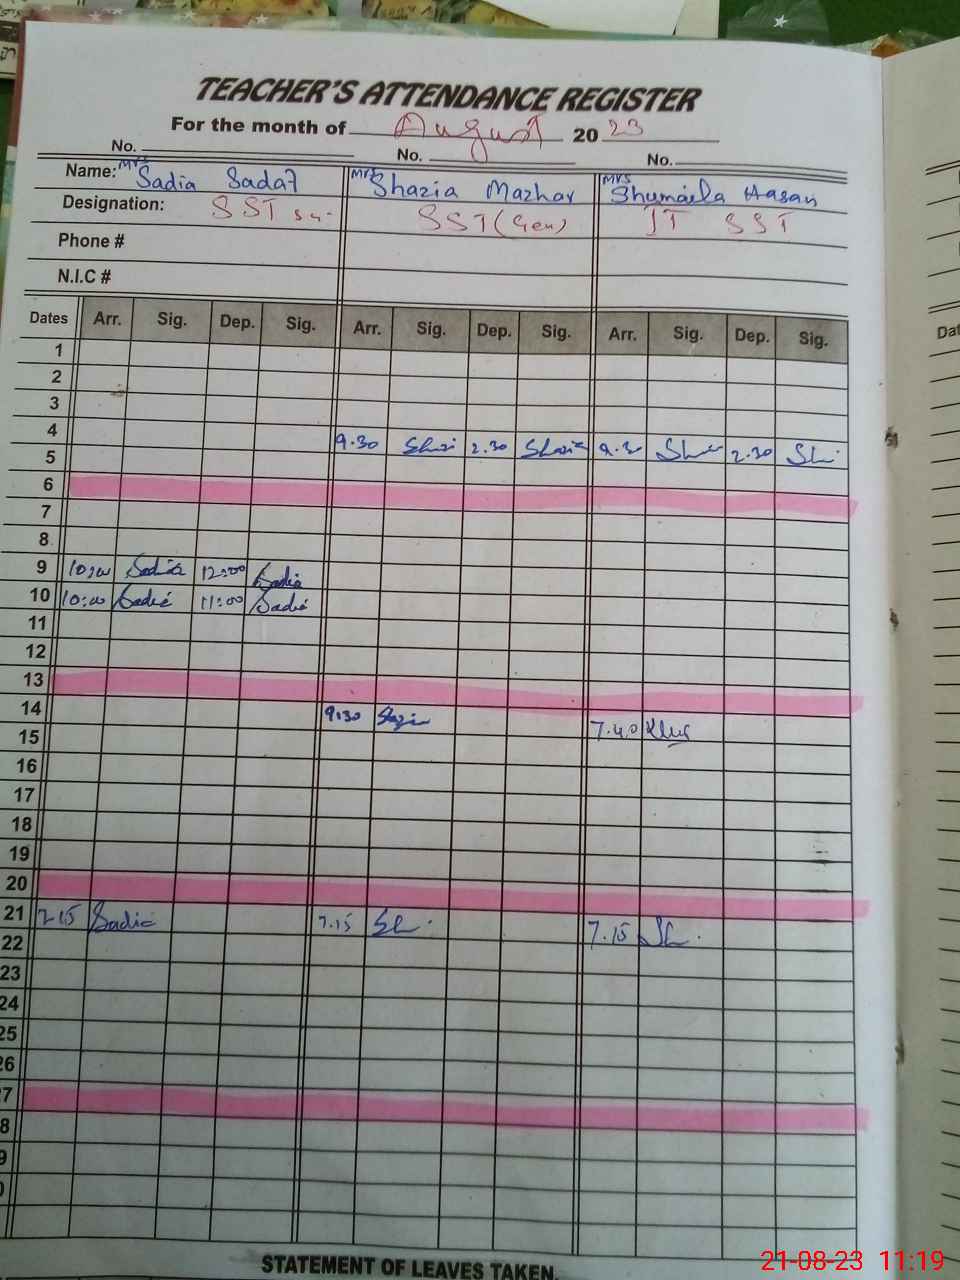 TEACHER'S ATTENDANCE REGISTER
For the month of August 20 23
No. No. No.
Name: Mrs Sadia Sadaf Mrs Shazia Mazhar Mrs Shumaila Hasan
Designation: SST SST (Gen) IT SST
Phone #
N.I.C #
Dates Arr. Sig. Dep. Sig. Arr. Sig. Dep. Sig. Arr. Sig. Dep. Sig.
1
2
3
4
5 9.30 Shazi 2.30 Shazia 9.30 2.30 Sh.
6
7
8
9 10:00 Sadia 12:00 Sadia
10 10:00 Sadia 11:00 Sadia
11
12
13
14 9:30
15 7.40
16
17
18
19
20
21 7.15 Sadia 7.15 Sh. 7.15 Sh.
22
23
24
25
26
27
8
9
0
STATEMENT OF LEAVES TAKEN.
Dat
21-08-23 11:19